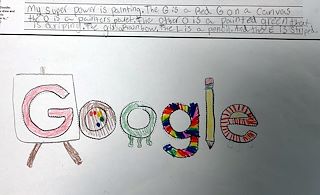 My super power is painting. The G is a Red G on a Canvas
the O is a painters palet. The other O is a painted green that
is dripping. the g is Rainbow, the L is a pencil. And the E is striped.
Google